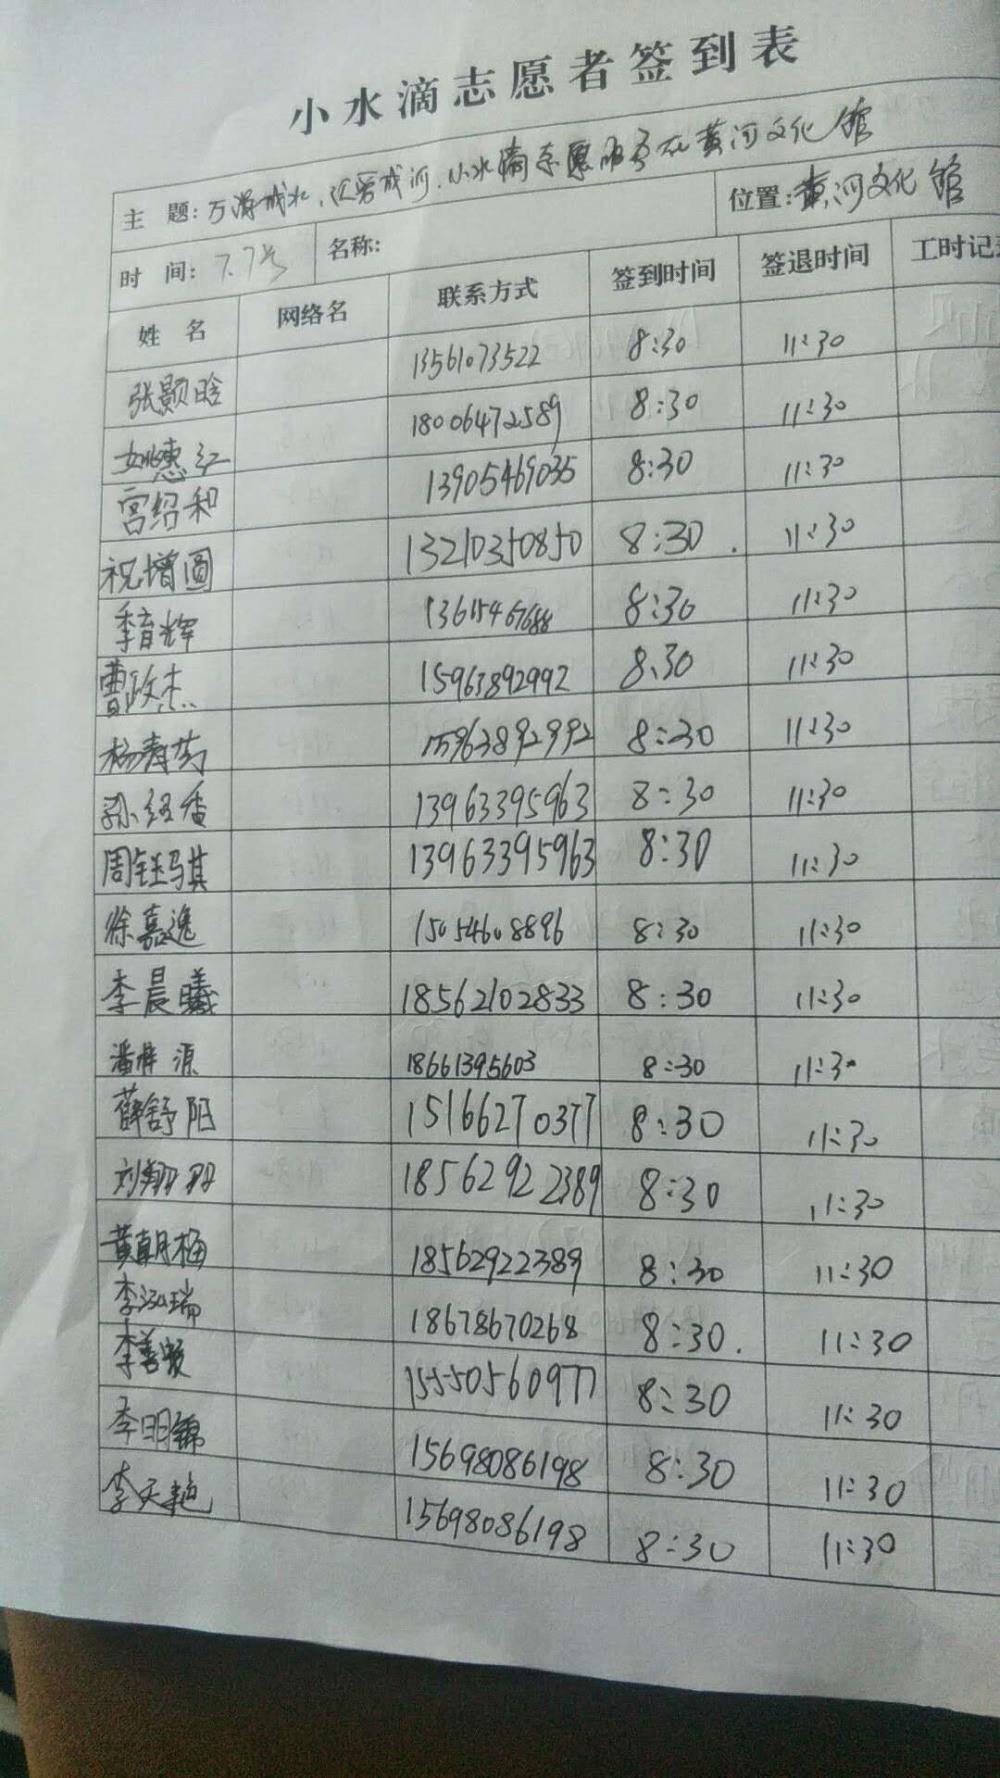 小水滴志愿者签到表
主 题: 万滴成水、汇爱成河.小水滴志愿服务在黄河文化馆 位置: 黄河文化馆
时 间: 7.7号 名称:
姓 名 网络名 联系方式 签到时间 签退时间 工时记
张颢晗 13561073522 8:30 11:30
惠红 18006472589 8:30 11:30
宫绍和 13905469035 8:30 11:30
祝增圆 13210350850 8:30 11:30
李育辉 8:30 11:30
曹政杰 15963892992 8:30 11:30
杨青芳 15963892992 8:30 11:30
孙红香 13963395963 8:30 11:30
周钰骐 13963395963 8:30 11:30
徐嘉逸 15054608896 8:30 11:30
李晨曦 18562102833 8:30 11:30
潘梓源 18661395603 8:30 11:30
薛舒阳 15166270377 8:30 11:30
刘 18562922389 8:30 11:30
黄朝梅 18562922389 8:30 11:30
李泓瑞 18678670268 8:30 11:30
李善贤 15550560977 8:30 11:30
李明锦 15698086198 8:30 11:30
李天艳 15698086198 8:30 11:30